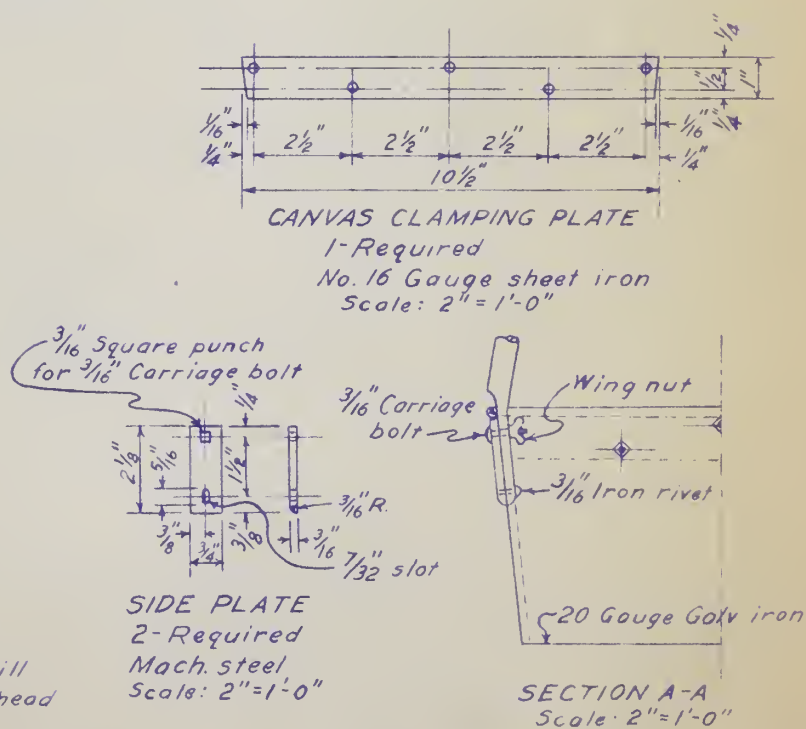 1/4"
1/2"
1"
1/4"
1/16"
1/4"
2 1/2"
2 1/2"
2 1/2"
2 1/2"
1/16"
1/4"
10 1/2"
CANVAS CLAMPING PLATE
1-Required
No. 16 Gauge sheet iron
Scale: 2" = 1'-0"
3/16" Square punch
for 3/16" Carriage bolt
1/4"
2 1/8"
5/16"
1 1/2"
3/16" R.
3/8"
3/4"
3/8"
3/16"
7/32" slot
SIDE PLATE
2-Required
Mach. steel
Scale: 2"=1'-0"
ill
head
3/16" Carriage
bolt
Wing nut
3/16" Iron rivet
20 Gauge Galv iron
SECTION A-A
Scale: 2"=1'-0"